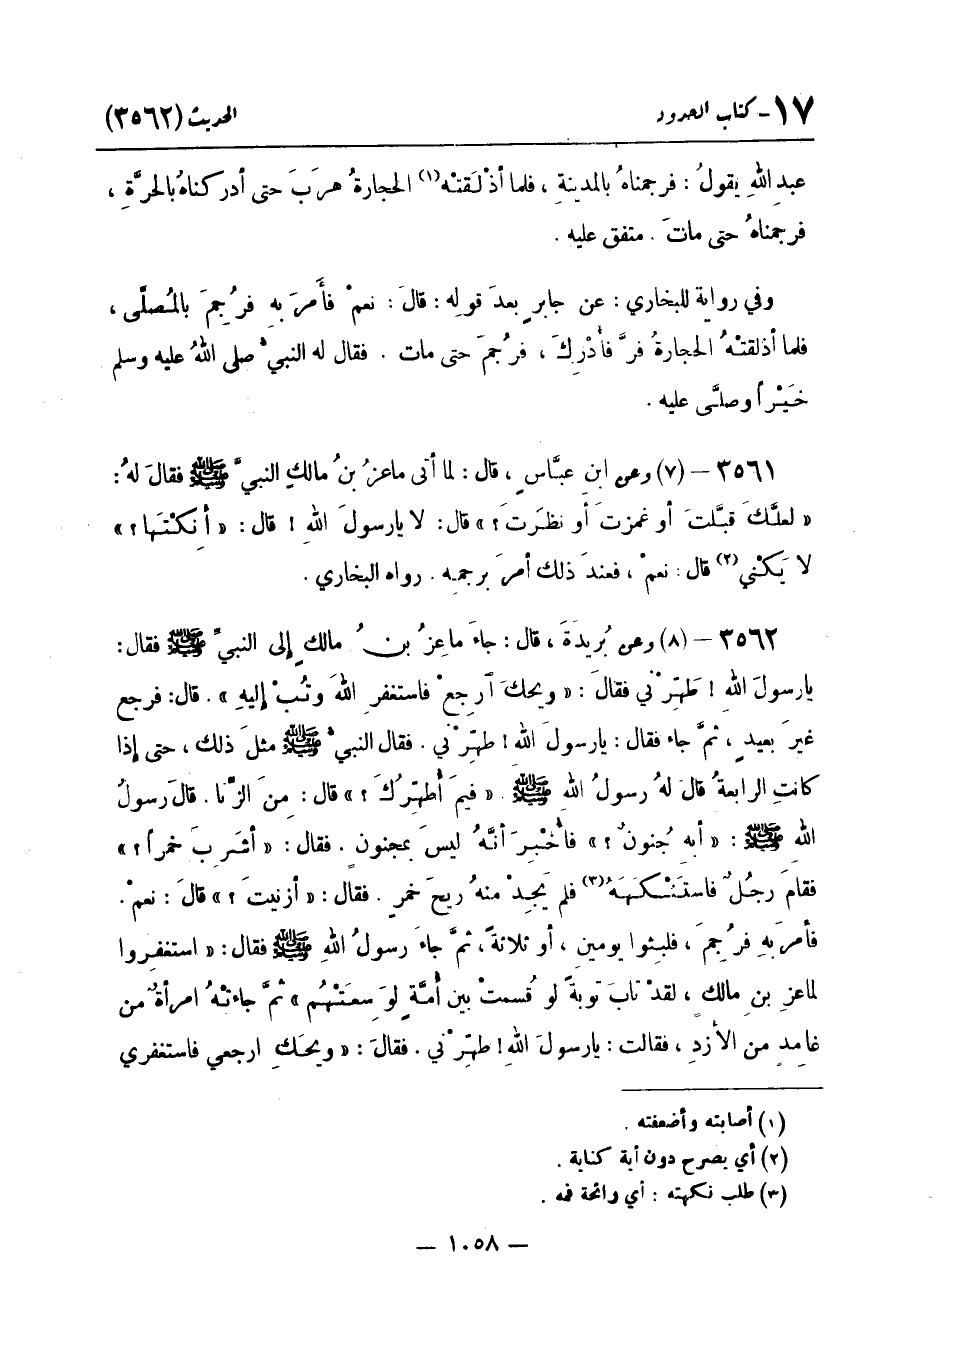 ١٧ - كتاب الحدود الحديث (٣٥٦٢)
عبدِ اللهِ يقولُ : فرجمناهُ بالمدينةِ ، فلما أذْلَقَتْه(١) الحجارةُ هربَ حتى أدركناهُ بالحَرَّةِ ،
فرجمناهُ حتى ماتَ . متفق عليه .
وفي رواية للبخاري : عن جابرٍ بعدَ قولِه : قالَ : نعمْ فأَمرَ بهِ فرُجِمَ بالمُصلَّى ،
فلما أذلقتْهُ الحجارةُ فرَّ فأُدْرِكَ ، فرُجمَ حتى مات . فقال له النبيُّ صلى اللهُ عليه وسلم
خَيْراً وصلَّى عليه .
٣٥٦١ - (٧) وعن ابنِ عبَّاسٍ ، قال : لما أتى ماعزُ بنُ مالكٍ النبيَّ ﷺ فقالَ لهُ :
« لعلَّكَ قبَّلتَ أو غمزتَ أو نظَرتَ ؟ » قال : لا يا رسولَ اللهِ ! قال : « أَنِكْتَها ؟ »
لا يَكْني(٢) قال : نعمْ ، فعندَ ذلك أمرَ برجمِه . رواه البخاري .
٣٥٦٢ - (٨) وعن بُريدَةَ ، قال : جاءَ ماعِزُ بنُ مالكٍ إلى النبيِّ ﷺ فقال :
يا رسولَ اللهِ ! طَهِّرْني فقالَ : « ويحكَ ٱرجعْ فاستغفرِ اللهَ وتُبْ إليهِ » . قال : فرجع
غيرَ بعيدٍ ، ثمَّ جاء فقال : يا رسولَ اللهِ ! طهِّرْني . فقال النبيُّ ﷺ مثلَ ذلك ، حتى إذا
كانتِ الرابعةُ قالَ لهُ رسولُ اللهِ ﷺ . « فيمَ أُطهِّرُكَ ؟ » قال : مِنَ الزِّنا . قالَ رسولُ
اللهِ ﷺ : « أبِهِ جُنونٌ ؟ » فأُخْبِرَ أنَّهُ ليسَ بمجنونٍ . فقال : « أشَرِبَ خمراً ؟ »
فقامَ رجُلٌ فاستَنْكَهَهُ(٣) فلم يَجِدْ منهُ ريحَ خمرٍ . فقال : « أزنيتَ ؟ » قالَ : نعمْ .
فأمرَ بهِ فرُجمَ ، فلبثوا يومينِ ، أو ثلاثةً ، ثمَّ جاءَ رسولُ اللهِ ﷺ فقال : « استغفِروا
لماعزِ بنِ مالكٍ ، لقدْ تابَ توبةً لو قُسمتْ بين أُمَّةٍ لوَسِعَتْهُم » ثمَّ جاءتْهُ امرأةٌ من
غامِدٍ من الأزدِ ، فقالت : يا رسولَ اللهِ ! طهِّرْني . فقالَ : « ويحَكِ ارجعي فاستغفري
(١) أصابته وأضعفته .
(٢) أي يصرح دون أية كناية .
(٣) طلب نكهته : أي رائحة فمه .
— ١٠٥٨ —